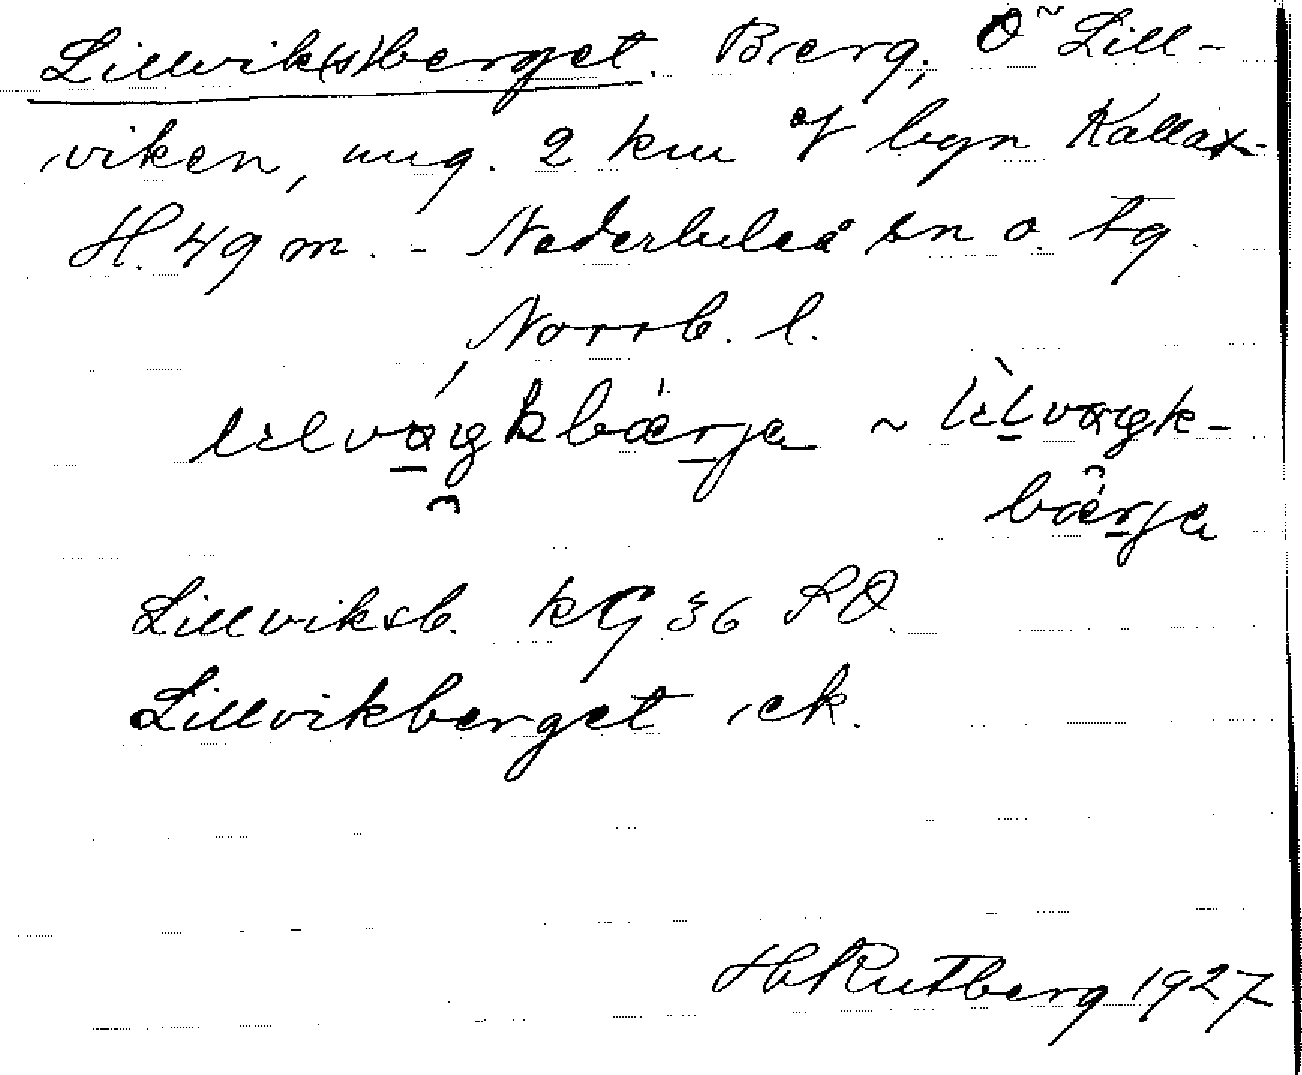 Lillvik(s)berget. Berg, Ö~ Lill-
viken, ung. 2 km af byn Kallax-
H. 49 m. - Nederluleå sn o. tg.
Norrb. l.
Lillviksb. kG 36 SO.
Lillvikberget ek.
H Rutberg 1927